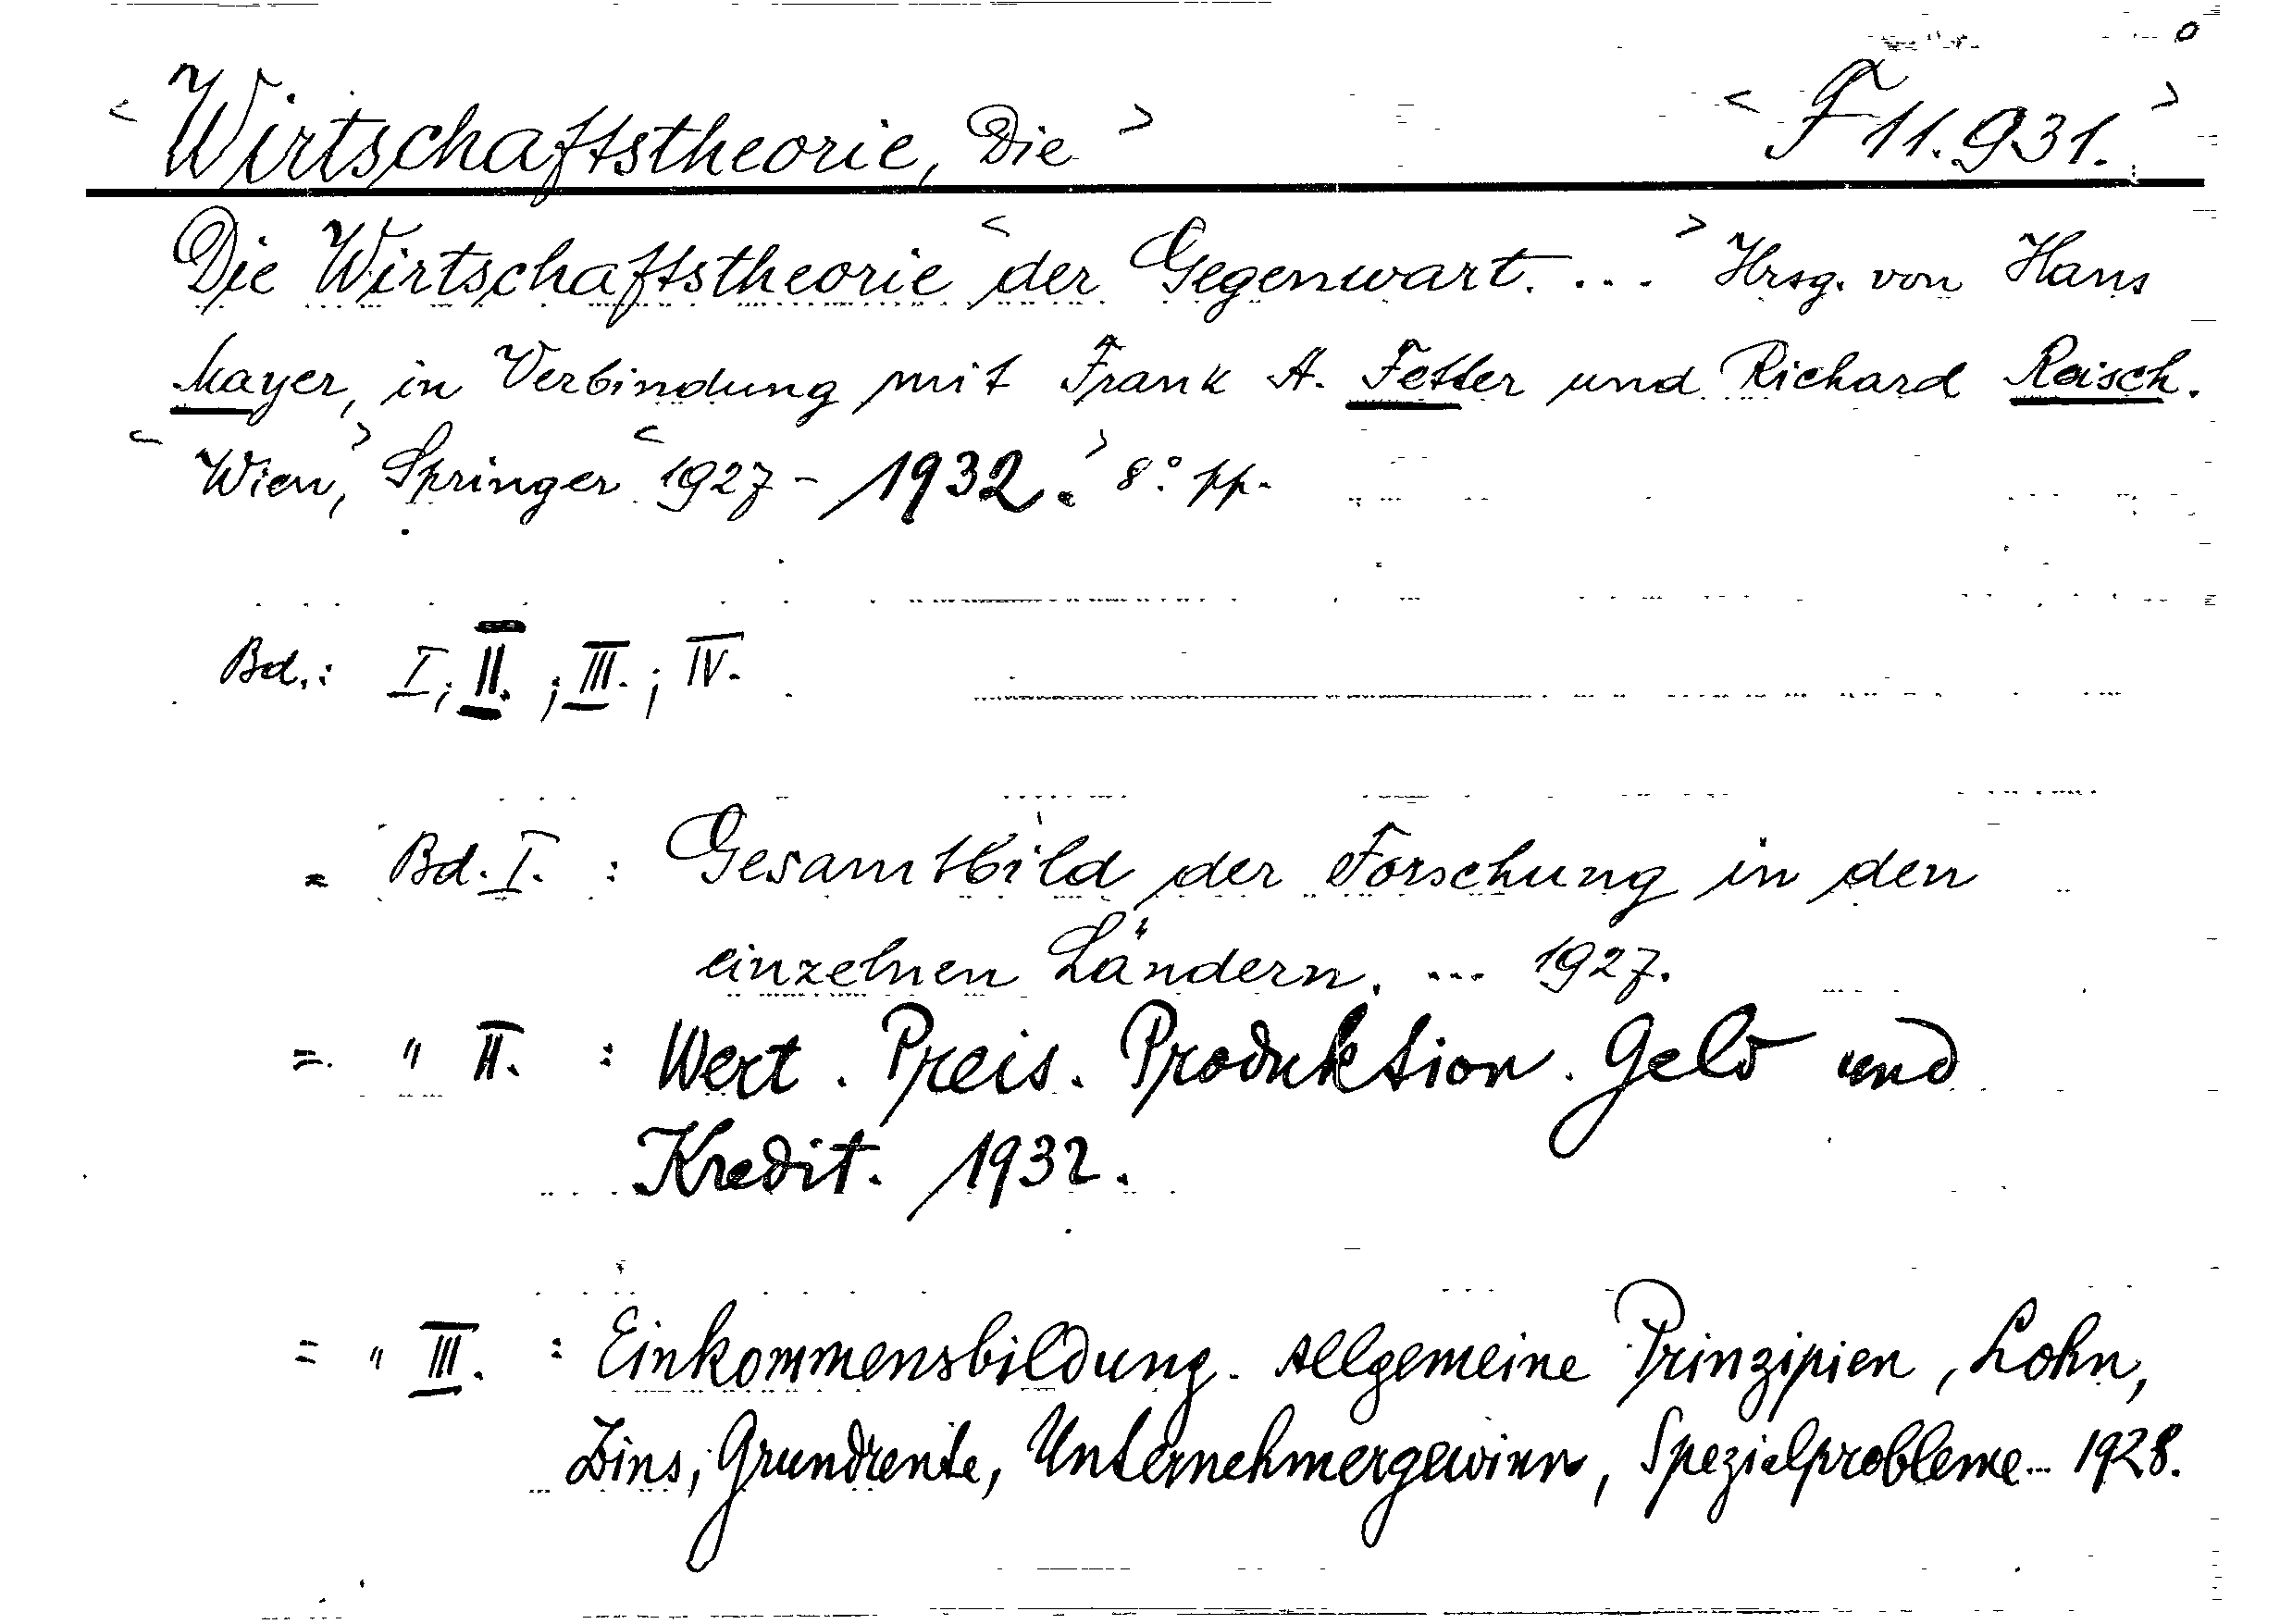 < Wirtschaftstheorie, Die > < F 11.931. >
Die Wirtschaftstheorie < der Gegenwart. ... > Hrsg. von Hans
Mayer, in Verbindung mit Frank A. Fetter und Richard Reisch.
< Wien, > Springer < 1927 - 1932. > 8° pp.
Bd.: I; II.; III.; IV.
= Bd. I. : Gesamtbild der Forschung in den
einzelnen Ländern. ... 1927.
= " II. : Wert. Preis. Produktion. Geld und
Kredit. 1932.
= " III. : Einkommensbildung. Allgemeine Prinzipien, Lohn,
Zins, Grundrente, Unternehmergewinn, Spezialprobleme... 1928.